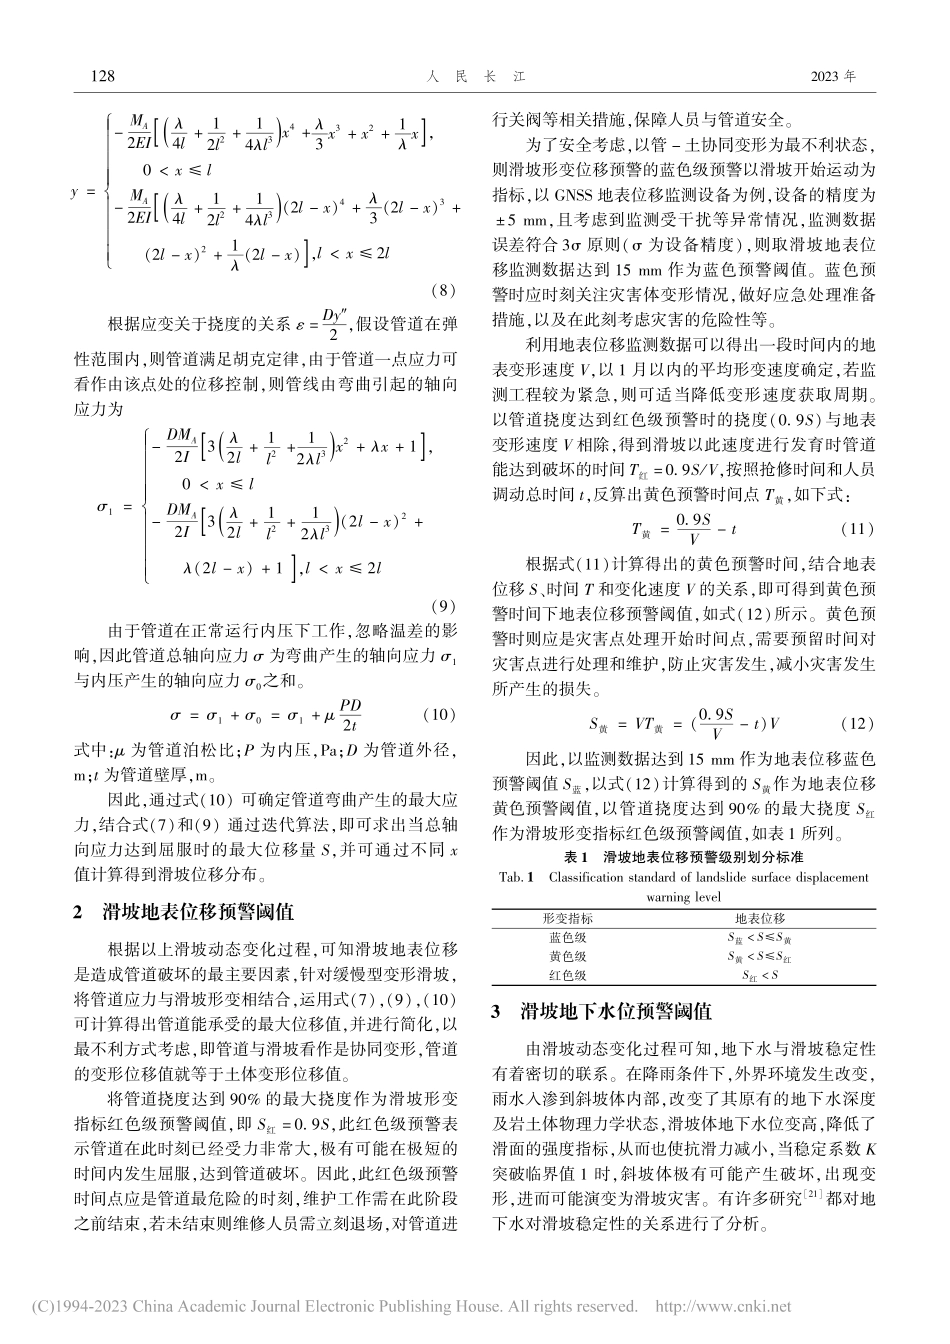 128
人 民 长 江
2023 年
y = { -M_A/2EI[(λ/4l + 1/2l² + 1/4λl³)x⁴ + λ/3 x³ + x² + 1/λ x],
0 < x ≤ l
-M_A/2EI[(λ/4l + 1/2l² + 1/4λl³)(2l - x)⁴ + λ/3 (2l - x)³ +
(2l - x)² + 1/λ (2l - x)], l < x ≤ 2l
(8)
根据应变关于挠度的关系 ε = Dy″/2,假设管道在弹
性范围内,则管道满足胡克定律,由于管道一点应力可
看作由该点处的位移控制,则管线由弯曲引起的轴向
应力为
σ₁ = { -DM_A/2I[3(λ/2l + 1/l² + 1/2λl³)x² + λx + 1],
0 < x ≤ l
-DM_A/2I[3(λ/2l + 1/l² + 1/2λl³)(2l - x)² +
λ(2l - x) + 1], l < x ≤ 2l
(9)
由于管道在正常运行内压下工作,忽略温差的影
响,因此管道总轴向应力 σ 为弯曲产生的轴向应力 σ₁
与内压产生的轴向应力 σ₀之和。
σ = σ₁ + σ₀ = σ₁ + μ PD/2t (10)
式中:μ 为管道泊松比;P 为内压,Pa;D 为管道外径,
m;t 为管道壁厚,m。
因此,通过式(10) 可确定管道弯曲产生的最大应
力,结合式(7)和(9) 通过迭代算法,即可求出当总轴
向应力达到屈服时的最大位移量 S,并可通过不同 x
值计算得到滑坡位移分布。
2 滑坡地表位移预警阈值
根据以上滑坡动态变化过程,可知滑坡地表位移
是造成管道破坏的最主要因素,针对缓慢型变形滑坡,
将管道应力与滑坡形变相结合,运用式(7),(9),(10)
可计算得出管道能承受的最大位移值,并进行简化,以
最不利方式考虑,即管道与滑坡看作是协同变形,管道
的变形位移值就等于土体变形位移值。
将管道挠度达到 90% 的最大挠度作为滑坡形变
指标红色级预警阈值,即 S红 = 0.9S,此红色级预警表
示管道在此时刻已经受力非常大,极有可能在极短的
时间内发生屈服,达到管道破坏。因此,此红色级预警
时间点应是管道最危险的时刻,维护工作需在此阶段
之前结束,若未结束则维修人员需立刻退场,对管道进
行关阀等相关措施,保障人员与管道安全。
为了安全考虑,以管 - 土协同变形为最不利状态,
则滑坡形变位移预警的蓝色级预警以滑坡开始运动为
指标,以 GNSS 地表位移监测设备为例,设备的精度为
±5 mm,且考虑到监测受干扰等异常情况,监测数据
误差符合 3σ 原则(σ 为设备精度),则取滑坡地表位
移监测数据达到 15 mm 作为蓝色预警阈值。蓝色预
警时应时刻关注灾害体变形情况,做好应急处理准备
措施,以及在此刻考虑灾害的危险性等。
利用地表位移监测数据可以得出一段时间内的地
表变形速度 V,以 1 月以内的平均形变速度确定,若监
测工程较为紧急,则可适当降低变形速度获取周期。
以管道挠度达到红色级预警时的挠度(0.9S)与地表
变形速度 V 相除,得到滑坡以此速度进行发育时管道
能达到破坏的时间 T红 = 0.9S/V,按照抢修时间和人员
调动总时间 t,反算出黄色预警时间点 T黄,如下式:
T黄 = 0.9S/V - t (11)
根据式(11)计算得出的黄色预警时间,结合地表
位移 S、时间 T 和变化速度 V 的关系,即可得到黄色预
警时间下地表位移预警阈值,如式(12)所示。黄色预
警时则应是灾害点处理开始时间点,需要预留时间对
灾害点进行处理和维护,防止灾害发生,减小灾害发生
所产生的损失。
S黄 = VT黄 = (0.9S/V - t)V (12)
因此,以监测数据达到 15 mm 作为地表位移蓝色
预警阈值 S蓝,以式(12)计算得到的 S黄作为地表位移
黄色预警阈值,以管道挠度达到 90% 的最大挠度 S红
作为滑坡形变指标红色级预警阈值,如表 1 所列。
表 1 滑坡地表位移预警级别划分标准
Tab. 1 Classification standard of landslide surface displacement
warning level
形变指标 地表位移
蓝色级 S蓝 < S ≤ S黄
黄色级 S黄 < S ≤ S红
红色级 S红 < S
3 滑坡地下水位预警阈值
由滑坡动态变化过程可知,地下水与滑坡稳定性
有着密切的联系。在降雨条件下,外界环境发生改变,
雨水入渗到斜坡体内部,改变了其原有的地下水深度
及岩土体物理力学状态,滑坡体地下水位变高,降低了
滑面的强度指标,从而也使抗滑力减小,当稳定系数 K
突破临界值 1 时,斜坡体极有可能产生破坏,出现变
形,进而可能演变为滑坡灾害。有许多研究[21]都对地
下水对滑坡稳定性的关系进行了分析。
(C)1994-2023 China Academic Journal Electronic Publishing House. All rights reserved. http://www.cnki.net